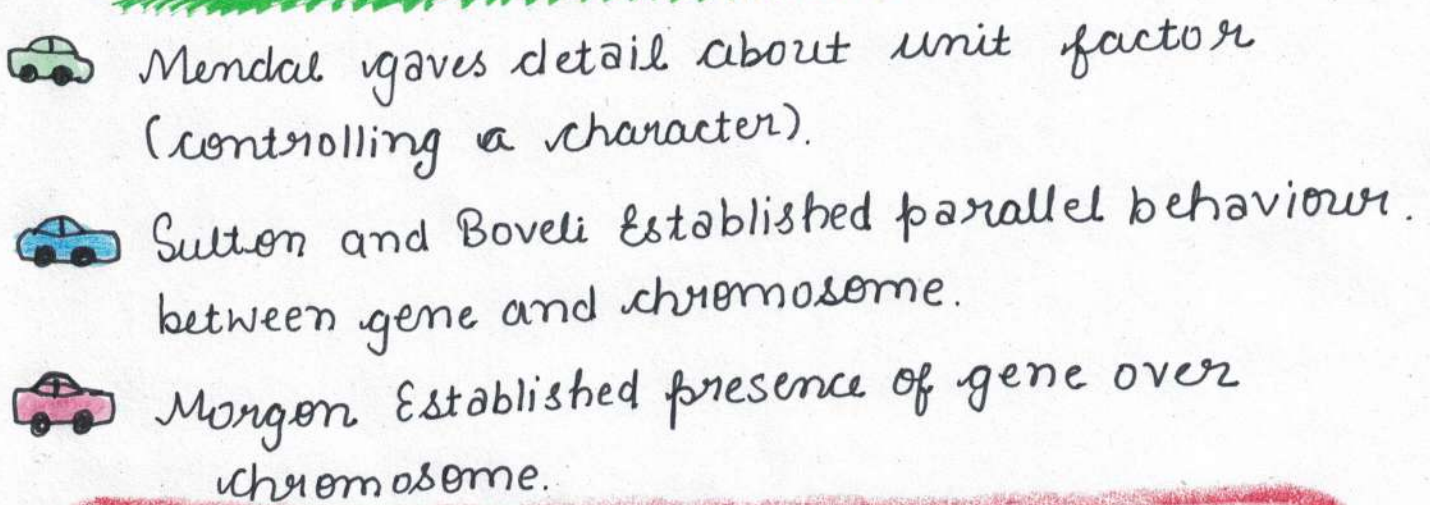 Mendal gaves detail about unit factor
(controlling a character).
Sutton and Boveli Established parallel behaviour.
between gene and chromosome.
Morgon Established presence of gene over
chromosome.